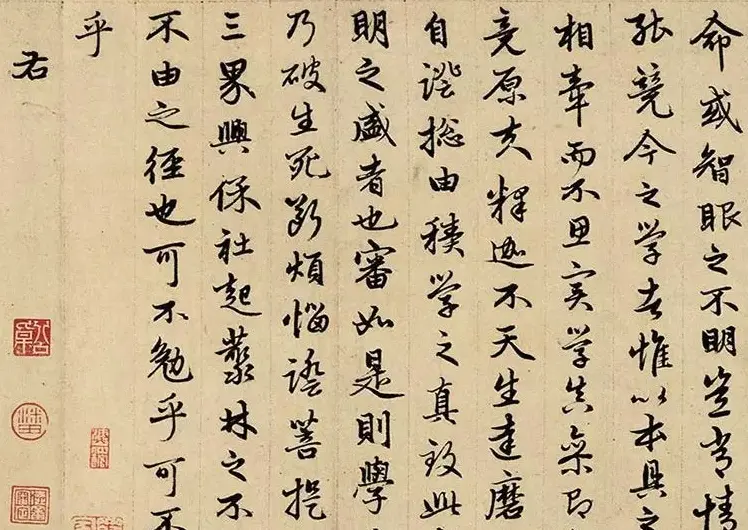 命或智眼之不明豈肯情
張競今之学者惟以本具
相牽而不思实学真棄即
竟原夫釋迦不天生達磨
自證捴由積学之真致此
明之盛者也審如是則學
乃破生死斷煩惱證菩提
三界興保社起叢林之不
不由之徑也可不勉乎可不
乎
右